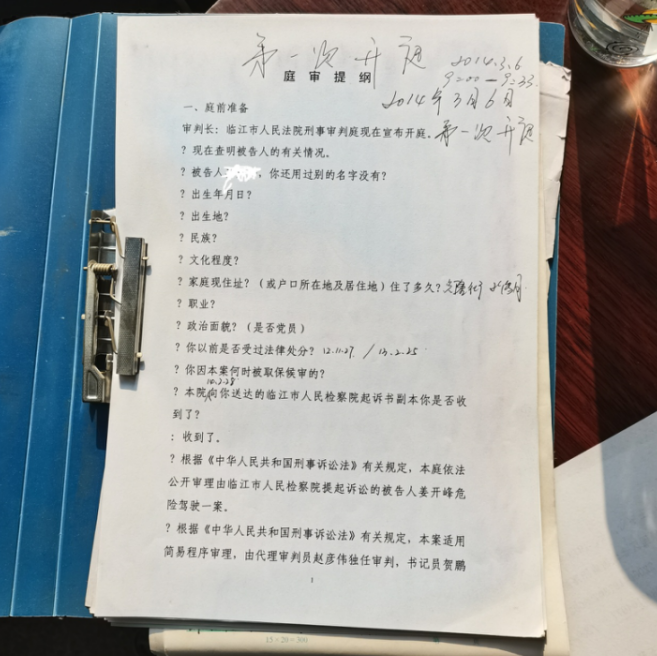 第一次开庭
2014.3.6
9:00—9:33.
庭审提纲
2014年3月6月
一、庭前准备
审判长：临江市人民法院刑事审判庭现在宣布开庭。第一次开庭
？现在查明被告人的有关情况。
？被告人，你还用过别的名字没有？
？出生年月日？
？出生地？
？民族？
？文化程度？
？家庭现住址？（或户口所在地及居住地）住了多久？
？职业？
？政治面貌？（是否党员）
？你以前是否受过法律处分？12.11.27. / 13.2.25.
？你因本案何时被取保候审的？
？本院向你送达的临江市人民检察院起诉书副本你是否收
到了？
：收到了。
？根据《中华人民共和国刑事诉讼法》有关规定，本庭依法
公开审理由临江市人民检察院提起诉讼的被告人姜开峰危
险驾驶一案。
？根据《中华人民共和国刑事诉讼法》有关规定，本案适用
简易程序审理，由代理审判员赵彦伟独任审判，书记员贺鹏
1
15×20=300